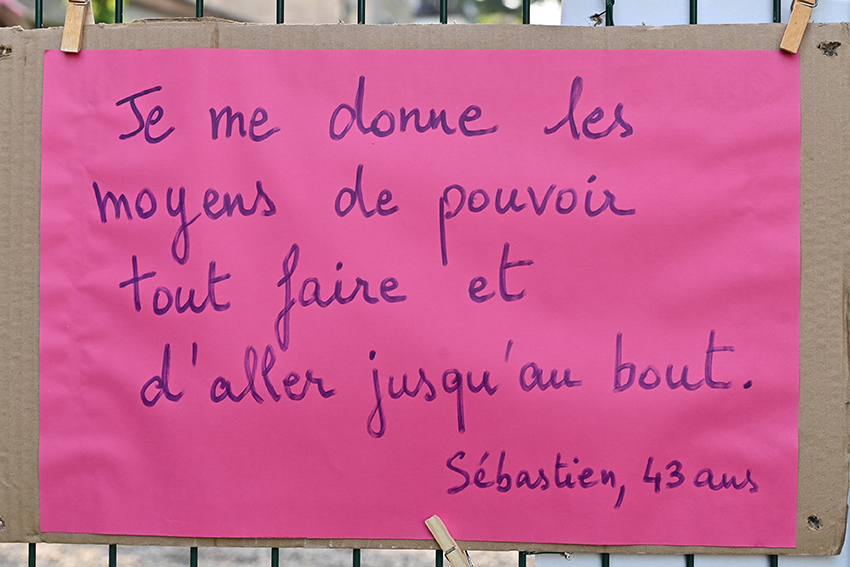 Je me donne les
moyens de pouvoir
tout faire et
d'aller jusqu'au bout.
Sébastien, 43 ans